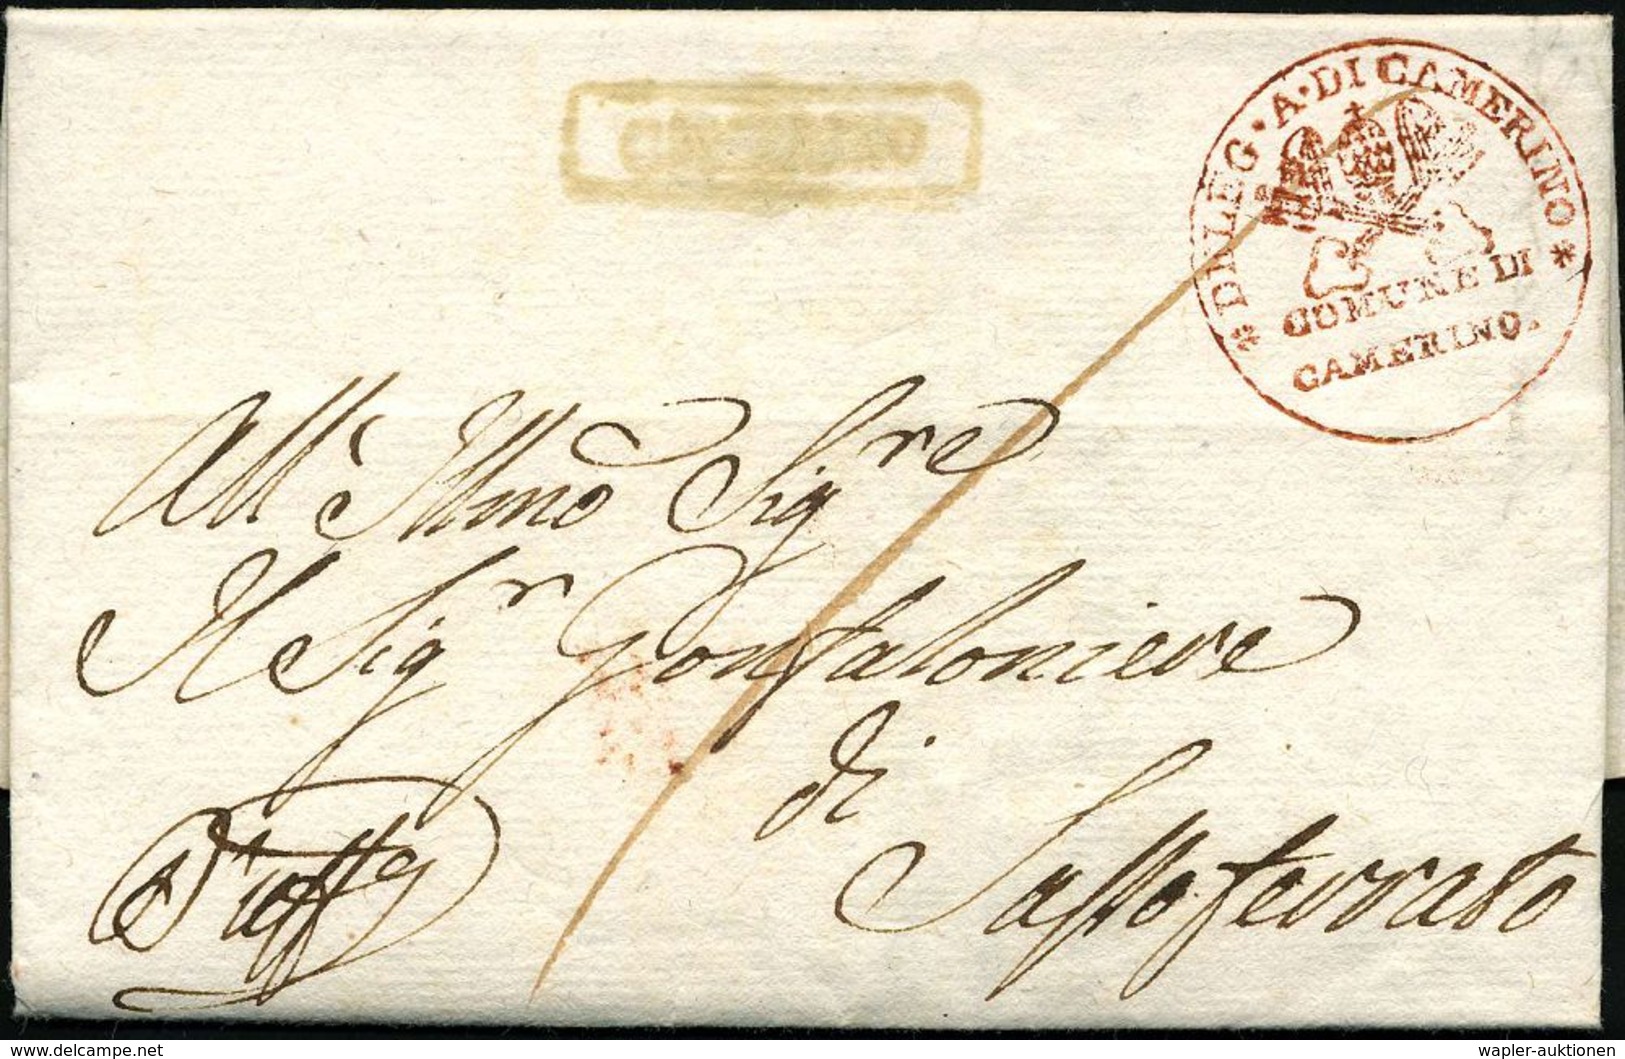 CAMERINO
* DELEG • A • DI CAMERINO *
COMUNE DI
CAMERINO.
All' Illmo Sigre
Il Sigr Gonfaloniere
di
Sassoferrato
D'uff
www.delcampe.net
wapler-auktionen